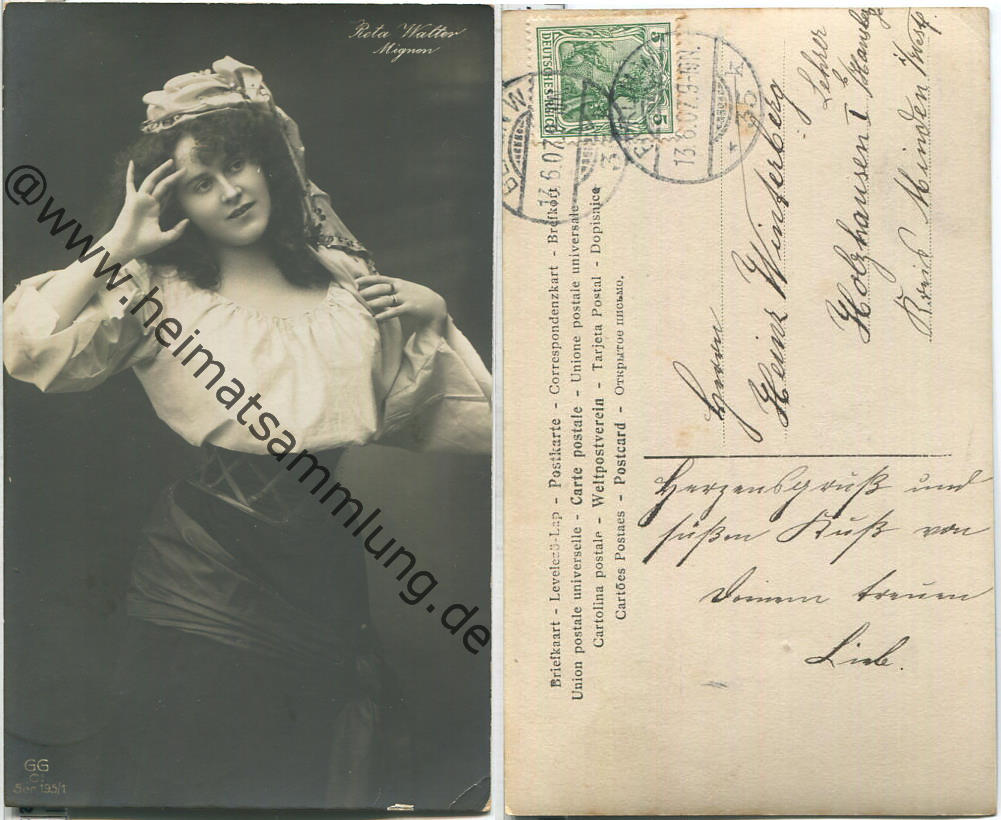 Rota Walter
Mignon
@www.heimatsammlung.de
GG
Co
Ser 195/1
DEUTSCHES REICH
5
5
BERLIN W
13.6.07
BERLIN W
13.6.07. 9-10N.
* 30 k
Briefkaart - Levelező-Lap - Postkarte - Correspondenzkart - Brefkort
Union postale universelle - Carte postale - Unione postale universale
Cartolina postale - Weltpostverein - Tarjeta Postal - Dopisnice
Cartões Postaes - Postcard - Открытое письмо.
Herrn
Heinz Winterberg
Lehrer
Holzhausen I
Kreis Minden i/Westf.
Herzensgruß und
süßen Kuß von
Deinem treuen
Lieb.